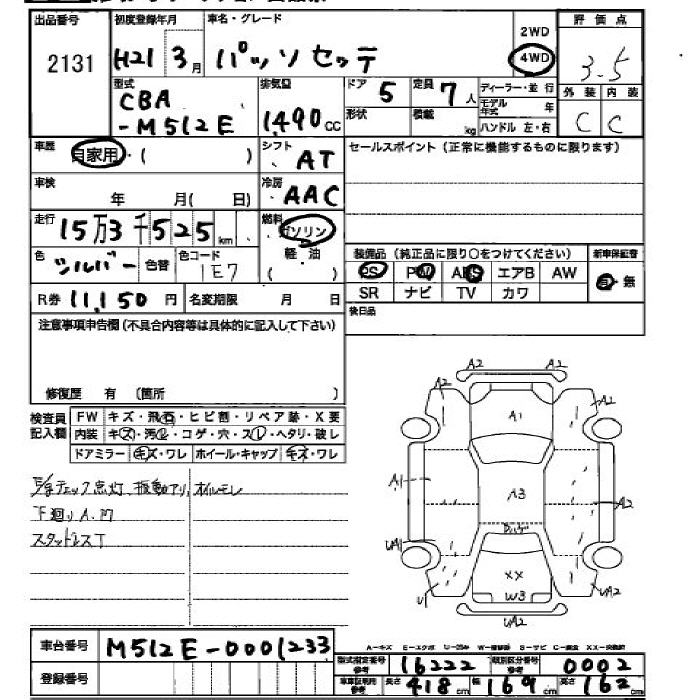 出品番号 初度登録年月 車名・グレード 評価点
2131 H21 3月 パッソセッテ 2WD 4WD 3.5
型式 排気量 ドア 5 定員 7人 ディーラー・並行 外装 内装
CBA -M512E 1,490cc 形状 積載 kg モデル年式 年 ハンドル 左・右 C C
車歴 自家用・( ) シフト AT セールスポイント(正常に機能するものに限ります)
車検 年 月( 日) 冷房 AAC
走行 15万3千525km 燃料 ガソリン
色 シルバー 色替 色コード 1E7 軽油 ( ) 装備品(純正品に限り○をつけてください) 新車保証書
PS PW ABS エアB AW 有・無
R券 11,150円 名変期限 月 日 SR ナビ TV カワ
注意事項申告欄(不具合内容等は具体的に記入して下さい) 後日品
修復歴 有 (箇所 )
検査員記入欄 FW キズ・飛石・ヒビ割・リペア跡・X要
内装 キズ・汚レ・コゲ・穴・スレ・ヘタリ・破レ
ドアミラー キズ・ワレ ホイール・キャップ キズ・ワレ
チェック点灯、振動アリ、オイルモレ
下廻りA.M
スタットレスT
A2 A2
A2 A1 A2
A1 A3 A2
UA1 UA1
XX
U1 W3 UA2
UA2
A-キズ E-エクボ U-凹み W-補修跡 S-サビ C-腐食 XX-交換済
車台番号 M512E-0001233
型式指定番号 参考 16222 類別区分番号 参考 0002
登録番号 車庫証明用 参考 長さ 418cm 幅 169cm 高さ 162cm